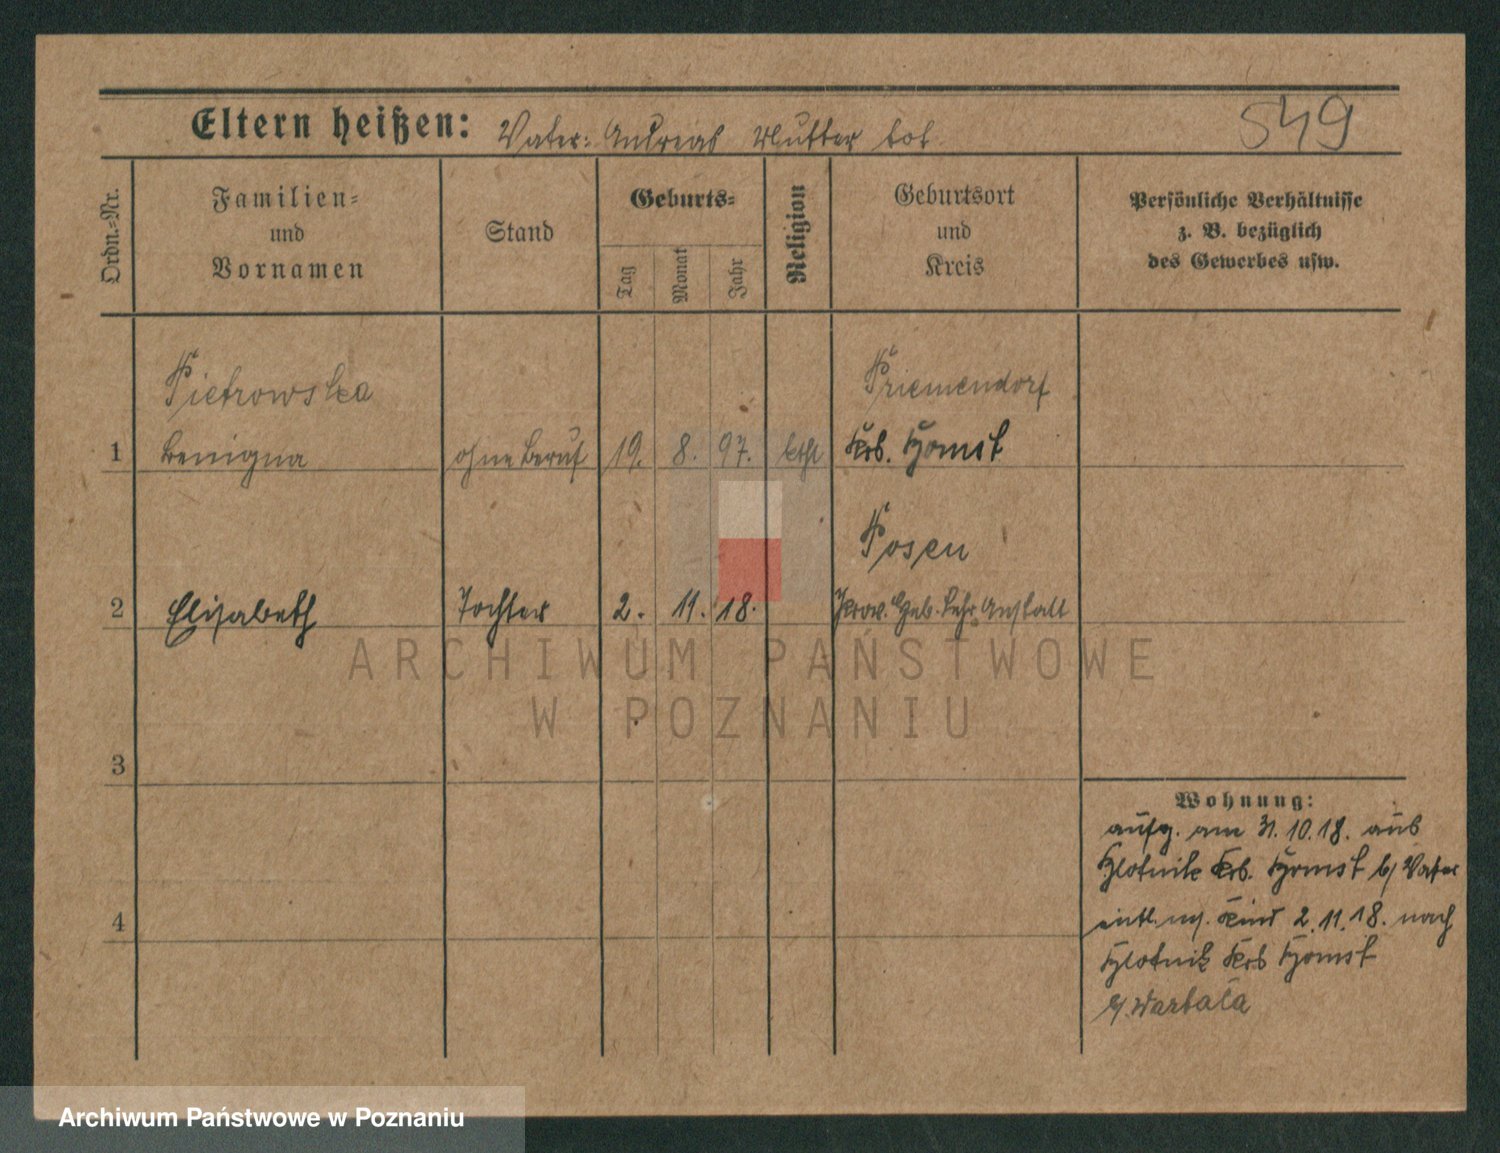 Eltern heißen: Vater: Andreas Mutter tot 549
Ordn.-Nr.
Familien- und Vornamen
Stand
Geburts-
Tag
Monat
Jahr
Religion
Geburtsort und Kreis
Persönliche Verhältnisse
z. B. bezüglich
des Gewerbes usw.
Pietrowska Priemendorf
1 Benigna ohne Beruf 19. 8. 97. kath Krs. Bomst
Posen
2 Elisabeth Tochter 2. 11. 18. Prov. Heb. Lehr Anstalt
3
Wohnung:
aufg. am 31.10.18. aus
Krs. Bomst b/ Vater
4
entl. m. Kind 2.11.18. nach
Krs Bomst
ARCHIWUM PAŃSTWOWE
W POZNANIU
Archiwum Państwowe w Poznaniu